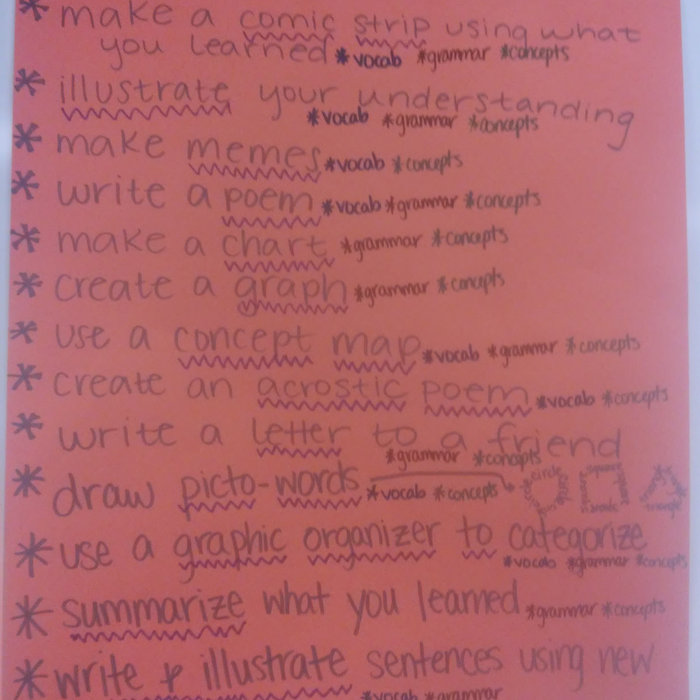 * make a comic strip using what
you learned *vocab *grammar *concepts
* illustrate your understanding
*vocab *grammar *concepts
* make memes *vocab *concepts
* write a poem *vocab *grammar *concepts
* make a chart *grammar *concepts
* create a graph *grammar *concepts
* use a concept map *vocab *grammar *concepts
* create an acrostic poem *vocab *concepts
* write a letter to a friend
*grammar *concepts
* draw picto-words *vocab *concepts circle square triangle
* use a graphic organizer to categorize
*vocab *grammar *concepts
* summarize what you learned *grammar *concepts
* write & illustrate sentences using new
*vocab *grammar